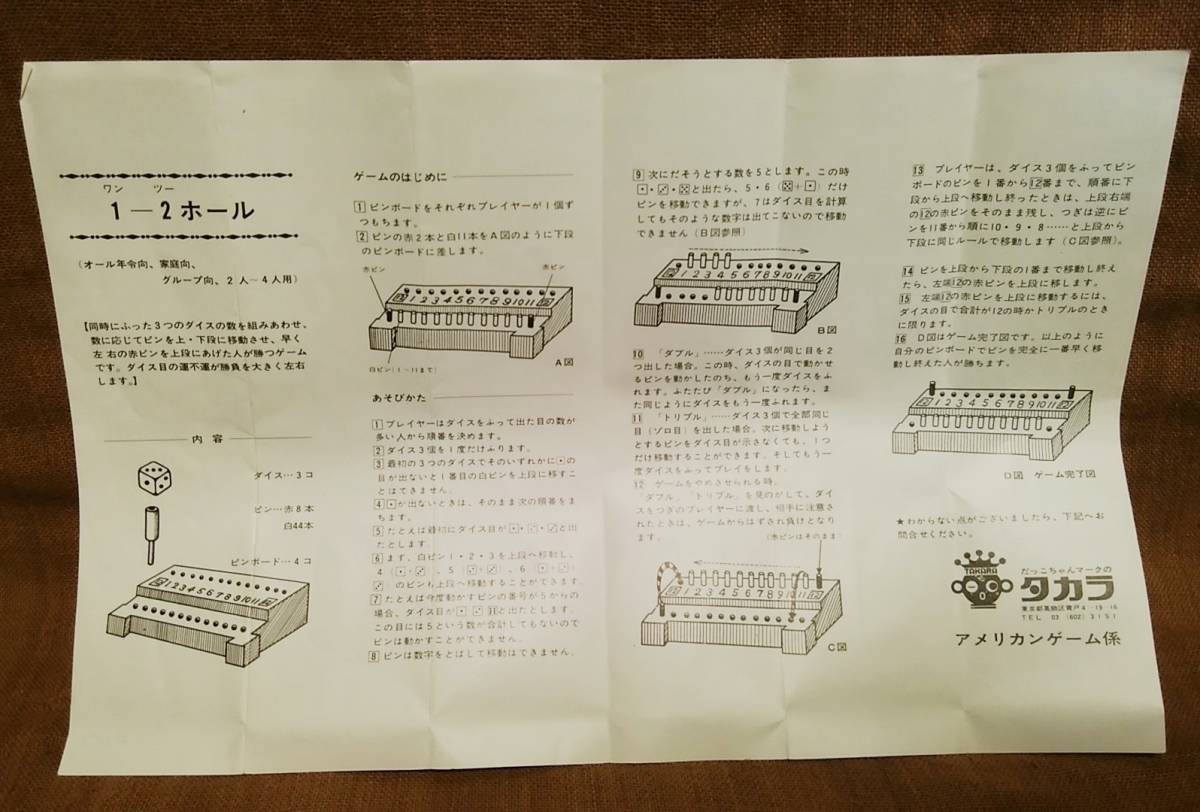 ワン ツー
1－2ホール
(オール年令向、家庭向、
グループ向、2人－4人用)
【同時にふった3つのダイスの数を組みあわせ、
数に応じてピンを上・下段に移動させ、早く
左右の赤ピンを上段にあげた人が勝つゲーム
です。ダイス目の運不運が勝負を大きく左右
します。】
内容
ダイス…3コ
ピン…赤8本
白44本
ピンボード…4コ
12 1 2 3 4 5 6 7 8 9 10 11 12
ゲームのはじめに
1 ピンボードをそれぞれプレイヤーが1個ず
つもちます。
2 ピンの赤2本と白11本をA図のように下段
のピンボードに差します。
赤ピン 赤ピン
12 1 2 3 4 5 6 7 8 9 10 11 12
白ピン(1～11まで)
A図
あそびかた
1 プレイヤーはダイスをふって出た目の数が
多い人から順番を決めます。
2 ダイス3個を1度だけふります。
3 最初の3つのダイスでそのいずれかに⚀の
目が出ないと1番目の白ピンを上段に移すこ
とはできません。
4 ⚀が出ないときは、そのまま次の順番をま
ちます。
5 たとえば最初にダイス目が⚀・⚁・⚂と出
たとします。
6 まず、白ピン1・2・3を上段へ移動し、
4 (⚀+⚂)、5 (⚁+⚂)、6 (⚀+⚁+
⚂) のピンも上段へ移動することができます。
7 たとえば今度動かすピンの番号が5からの
場合、ダイス目が⚀ ⚁ ⚅と出たとします。
この目には5という数が合計してもないので
ピンは動かすことができません。
8 ピンは数字をとばして移動はできません。
9 次にだそうとする数を5とします。この時
⚀・⚂・⚄と出たら、5・6 (⚄+⚀) だけ
ピンを移動できますが、7はダイス目を計算
してもそのような数字は出てこないので移動
できません (B図参照)
12 1 2 3 4 5 6 7 8 9 10 11 12
B図
10 「ダブル」……ダイス3個が同じ目を2
つ出した場合。この時、ダイスの目で動かせ
るピンを動かしたのち、もう一度ダイスをふ
れます。ふたたび「ダブル」になったら、ま
た同じようにダイスをもう一度ふれます。
11 「トリプル」……ダイス3個で全部同じ
目 (ゾロ目) を出した場合。次に移動しよう
とするピンをダイス目が示さなくても、1つ
だけ移動することができます。そしてもう一
度ダイスをふってプレイをします。
12 ゲームをやめさせられる時。
「ダブル」「トリプル」を見のがして、ダイ
スをつぎのプレイヤーに渡し、相手に注意さ
れたときは、ゲームからはずされ負けとなり
ます。
(赤ピンはそのまま)
12 1 2 3 4 5 6 7 8 9 10 11 12
C図
13 プレイヤーは、ダイス3個をふってピン
ボードのピンを1番から12番まで、順番に下
段から上段へ移動し終ったときは、上段右端
の12の赤ピンをそのまま残し、つぎは逆にピ
ンを11番から順に10・9・8……と上段から
下段に同じルールで移動します (C図参照)。
14 ピンを上段から下段の1番まで移動し終え
たら、左端12の赤ピンを上段に移します。
15 左端12の赤ピンを上段に移動するには、
ダイスの目で合計が12の時かトリプルのとき
に限ります。
16 D図はゲーム完了図です。以上のように
自分のピンボードでピンを完全に一番早く移
動し終えた人が勝ちます。
12 1 2 3 4 5 6 7 8 9 10 11 12
D図 ゲーム完了図
★わからない点がございましたら、下記へお
問合せください。
TAKARA
だっこちゃんマークの
タカラ
東京都葛飾区青戸4-19-16
TEL 03 (602) 3151
アメリカンゲーム係